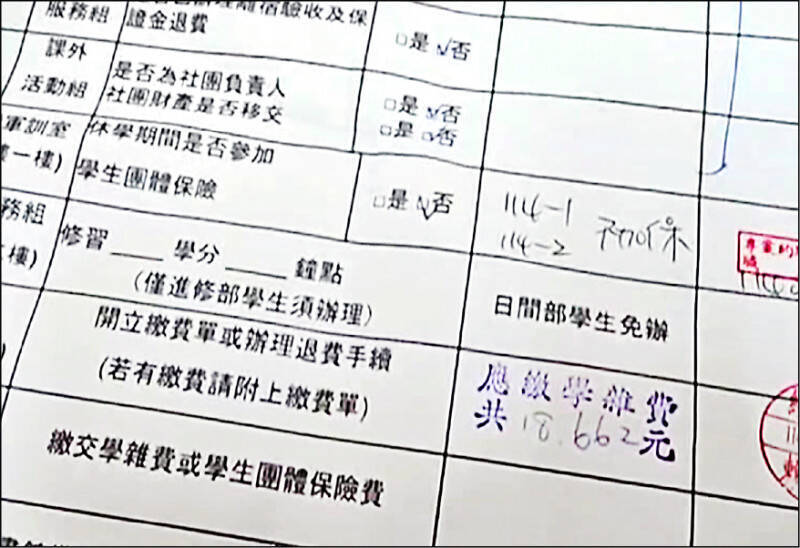 服務組
辦理離宿驗收及保
證金退費
□是 ☑否
課外
活動組
是否為社團負責人
社團財產是否移交
□是 ☑否
□是 □否
軍訓室
一樓)
休學期間是否參加
學生團體保險
□是 ☑否
114-1
114-2
不加保
務組
樓)
修習____學分____鐘點
(僅進修部學生須辦理)
日間部學生免辦
開立繳費單或辦理退費手續
(若有繳費請附上繳費單)
應繳學雜費
共18,662元
繳交學雜費或學生團體保險費